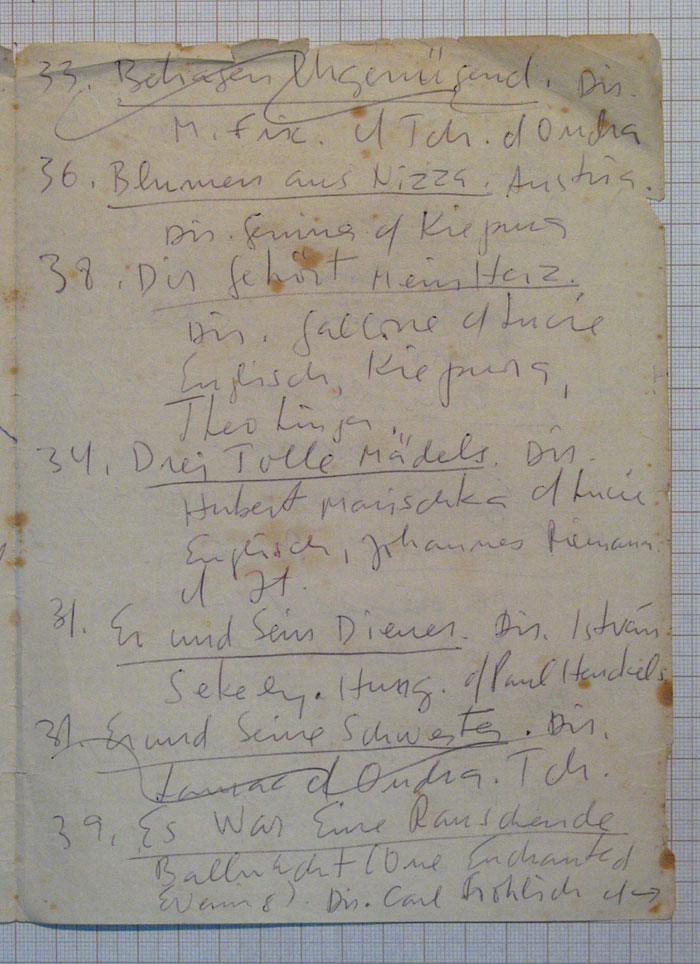 33. Betragen Ungenügend. Dir.
M. Fric. d Tch. d Ondra
36. Blumen aus Nizza. Austria.
Dir. Genina d Kiepura
38. Dir Gehört Mein Herz.
Dir. Gallone d Lucie
Englisch, Kiepura,
Theo Lingen.
34. Drei Tolle Mädels. Dir.
Hubert Marischka d Lucie
Englisch, Johannes Riemann
d It.
31. Er und Sein Diener. Dir. István
Sekely. Hung. d Paul Henckels
31. Er und Seine Schwester. Dir.
Lamac d Ondra. Tch.
39. Es War Eine Rauschende
Ballnacht (One Enchanted
Evening). Dir. Carl Fröhlich d →